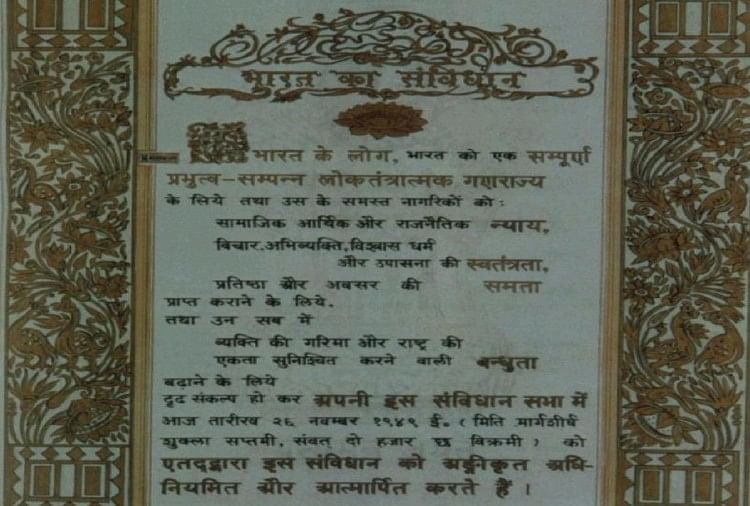 भारत का संविधान
भारत के लोग, भारत को एक सम्पूर्ण
प्रभुत्व-सम्पन्न लोकतंत्रात्मक गणराज्य
के लिये तथा उस के समस्त नागरिकों को:
सामाजिक आर्थिक और राजनैतिक न्याय,
विचार, अभिव्यक्ति, विश्वास धर्म
और उपासना की स्वतंत्रता,
प्रतिष्ठा और अवसर की समता
प्राप्त कराने के लिये,
तथा उन सब में
व्यक्ति की गरिमा और राष्ट्र की
एकता सुनिश्चित करने वाली बन्धुता
बढ़ाने के लिये
दृढ़ संकल्प हो कर अपनी इस संविधान सभा में
आज तारीख २६ नवम्बर १९४९ ई॰ (मिति मार्गशीर्ष
शुक्ला सप्तमी, संवत् दो हजार छ विक्रमी) को
एतद्द्वारा इस संविधान को अङ्गीकृत अधि-
नियमित और आत्मार्पित करते हैं।